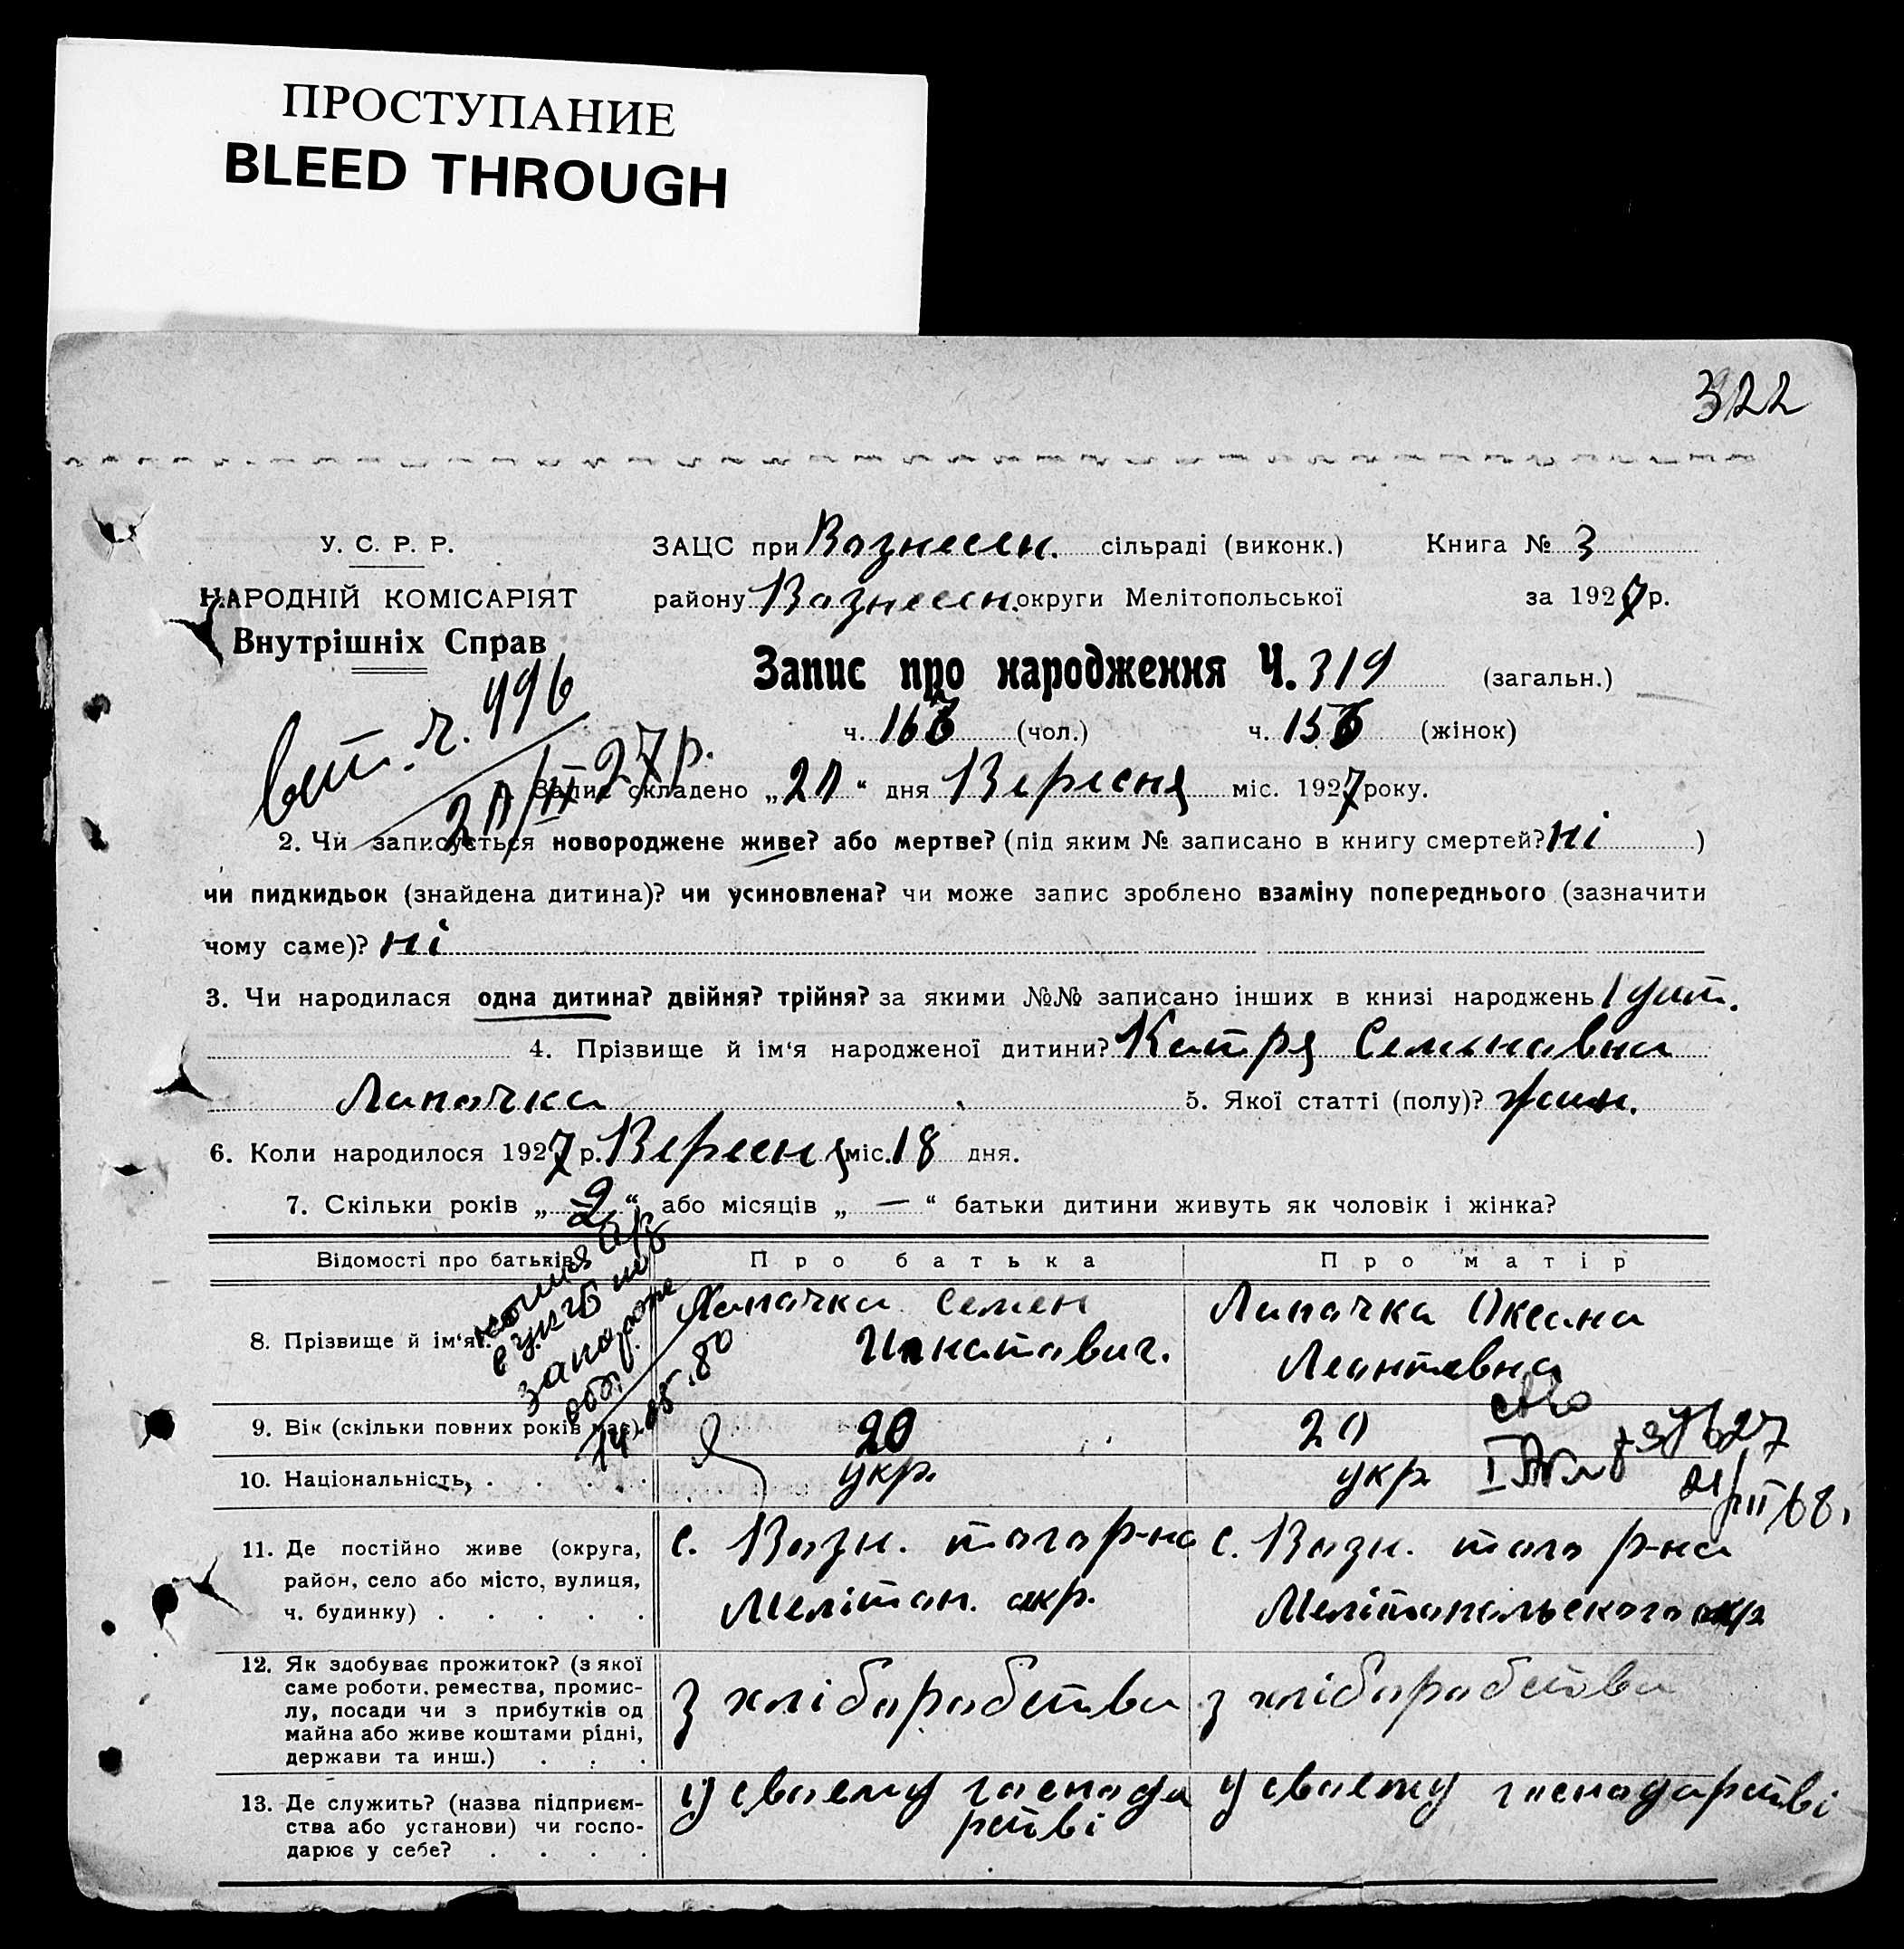 ПРОСТУПАНИЕ
BLEED THROUGH
322
У. С. Р. Р.
НАРОДНІЙ КОМІСАРІЯТ
Внутрішніх Справ
ЗАЦС при Вознесен. сільраді (виконк.) Книга № 3
району Вознесен. округи Мелітопольської за 1927 р.
Запис про народження Ч. 319 (загальн.)
ч. 163 (чол.) ч. 156 (жінок)
вит. ч. 996
20/IX 27 р.
Запис складено „20“ дня Вересня міс. 1927 року.
2. Чи записується новороджене живе? або мертве? (під яким № записано в книгу смертей? ні )
чи пидкидьок (знайдена дитина)? чи усиновлена? чи може запис зроблено взаміну попереднього (зазначити
чому саме)? ні
3. Чи народилася одна дитина? двійня? трійня? за якими №№ записано інших в книзі народжень 1 дит.
4. Прізвище й ім‘я народженої дитини? Катря Семеновна
Лапочка 5. Якої статті (полу)? жин.
6. Коли народилося 1927 р. Вересня міс. 18 дня.
7. Скільки років „ 2 “ або місяців „ — “ батьки дитини живуть як чоловік і жінка?
Відомості про батьків Про батька Про матір
8. Прізвище й ім‘я. Лапочка Семен Лапочка Оксана
Игнатович. Леонтевна
14.05.80
9. Вік (скільки повних років має). 20 20
10. Національність, укр. укр
11. Де постійно живе (округа, с. Возн. того р-на с. Возн. того р-на
район, село або місто, вулиця, Мелітоп. окр. Мелітопольского окр
ч. будинку)
12. Як здобуває прожиток? (з якої
саме роботи, ремества, промис- з хліборобства з хліборобства
лу, посади чи з прибутків од
майна або живе коштами рідні,
держави та инш.)
13. Де служить? (назва підприєм- у своему господа у своему господарстві
ства або установи) чи госпо- рстві
дарює у себе?